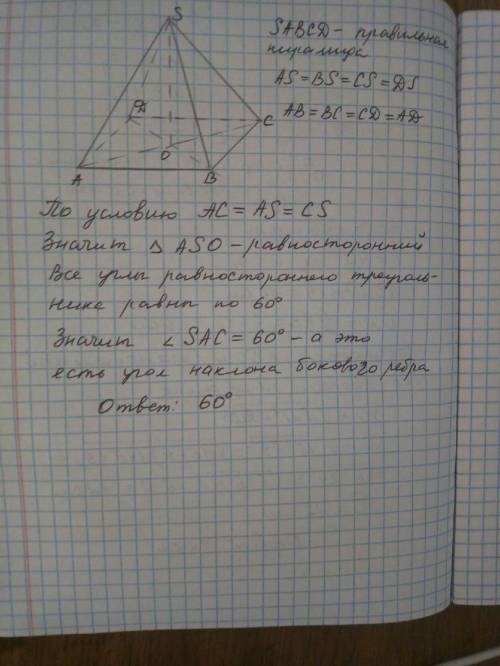 S
SABCD – правильная
пирамида
AS = BS = CS = DS
AB = BC = CD = AD
D
C
O
A
B
По условию AC = AS = CS
Значит △ ASO – равносторонний
Все углы равностороннего треуголь-
нике равны по 60°
Значит ∠ SAC = 60° – а это
есть угол наклона бокового ребра
Ответ: 60°